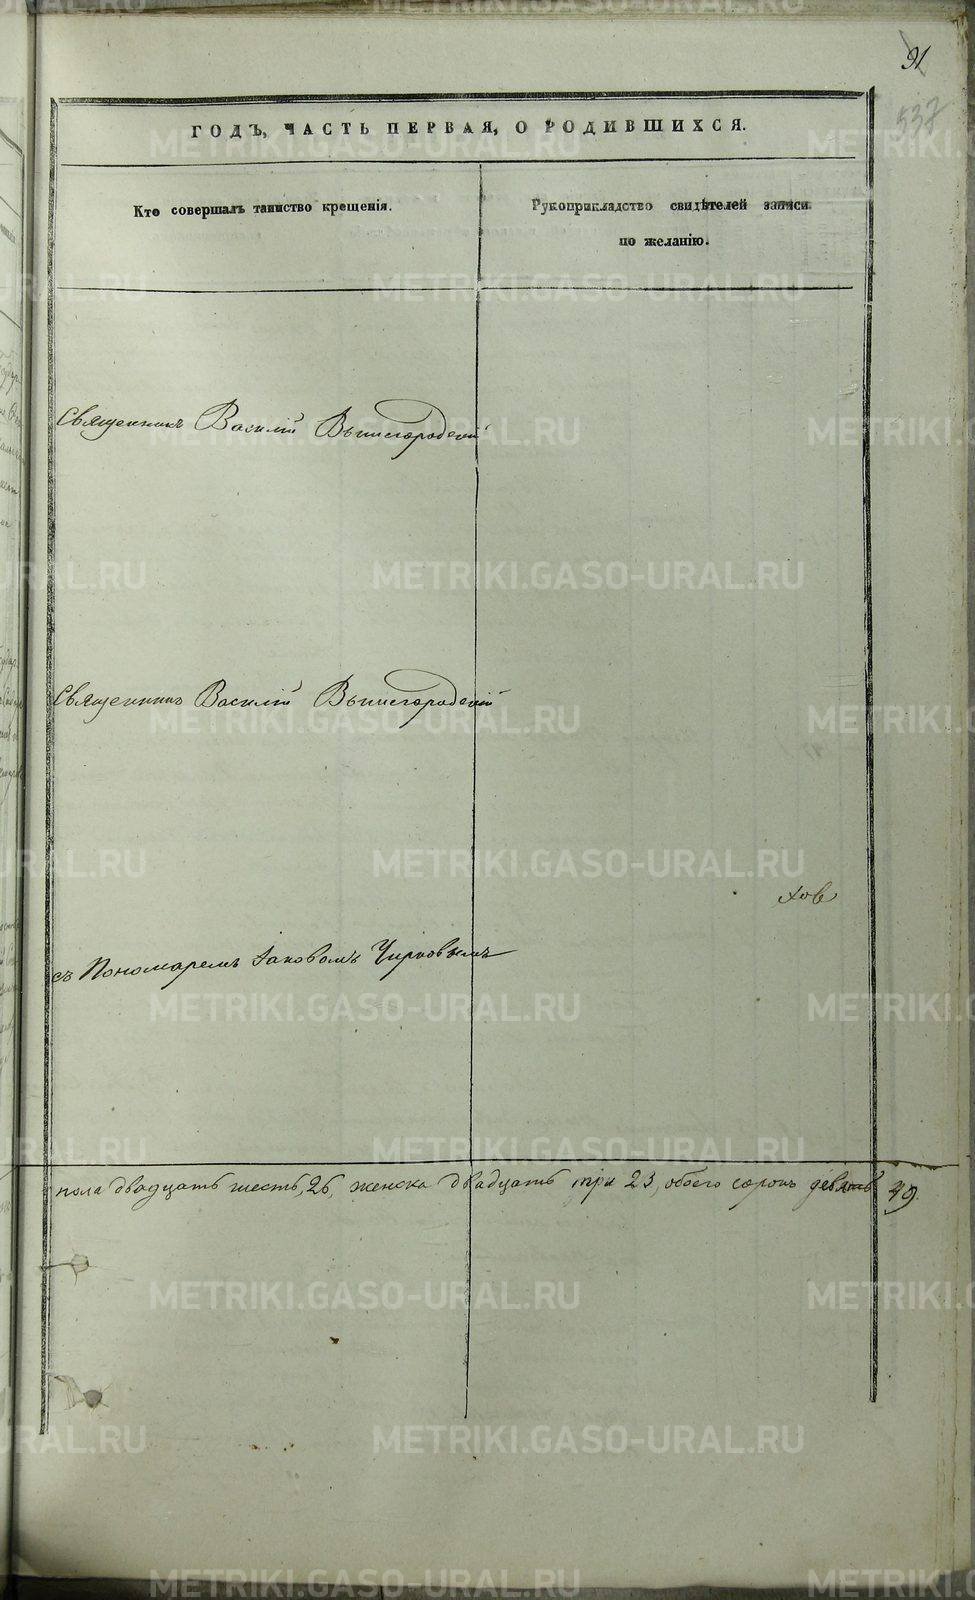 91
537
ГОДЪ, ЧАСТЬ ПЕРВАЯ, О РОДИВШИХСЯ.
Кто совершалъ таинство крещенія.
Рукоприкладство свидѣтелей записи
по желанію.
Священникъ Василій Вышегородскій
Священникъ Василій Вышегородскій
хов
съ Пономаремъ Іаковомъ Чирковымъ
пола двадцать шесть, 26, женска двадцать три 23, обоего сорокъ девять 49.
METRIKI.GASO-URAL.RU